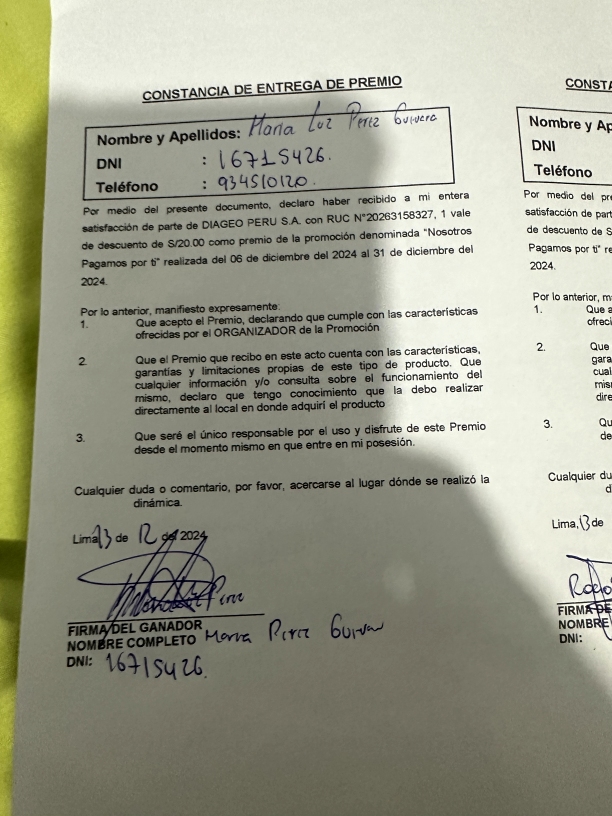 CONSTANCIA DE ENTREGA DE PREMIO
Nombre y Apellidos: Maria Luz Perez
DNI : 16715426.
Teléfono : 934510120.
Por medio del presente documento, declaro haber recibido a mi entera
satisfacción de parte de DIAGEO PERU S.A. con RUC N°20263158327, 1 vale
de descuento de S/20.00 como premio de la promoción denominada “Nosotros
Pagamos por ti” realizada del 06 de diciembre del 2024 al 31 de diciembre del
2024.
Por lo anterior, manifiesto expresamente:
1. Que acepto el Premio, declarando que cumple con las características
ofrecidas por el ORGANIZADOR de la Promoción
2. Que el Premio que recibo en este acto cuenta con las características,
garantías y limitaciones propias de este tipo de producto. Que
cualquier información y/o consulta sobre el funcionamiento del
mismo, declaro que tengo conocimiento que la debo realizar
directamente al local en donde adquirí el producto
3. Que seré el único responsable por el uso y disfrute de este Premio
desde el momento mismo en que entre en mi posesión.
Cualquier duda o comentario, por favor, acercarse al lugar dónde se realizó la
dinámica.
Lima, 13 de 12 del 2024
FIRMA DEL GANADOR
NOMBRE COMPLETO Maria Perez
DNI: 16715426.
CONSTA
Nombre y Ap
DNI
Teléfono
Por medio del pre
satisfacción de part
de descuento de S
Pagamos por ti” re
2024.
Por lo anterior, m
1. Que a
ofreci
2. Que
gara
cual
mis
dire
3. Qu
de
Cualquier du
d
Lima, 13 de
FIRMA DE
NOMBRE
DNI: